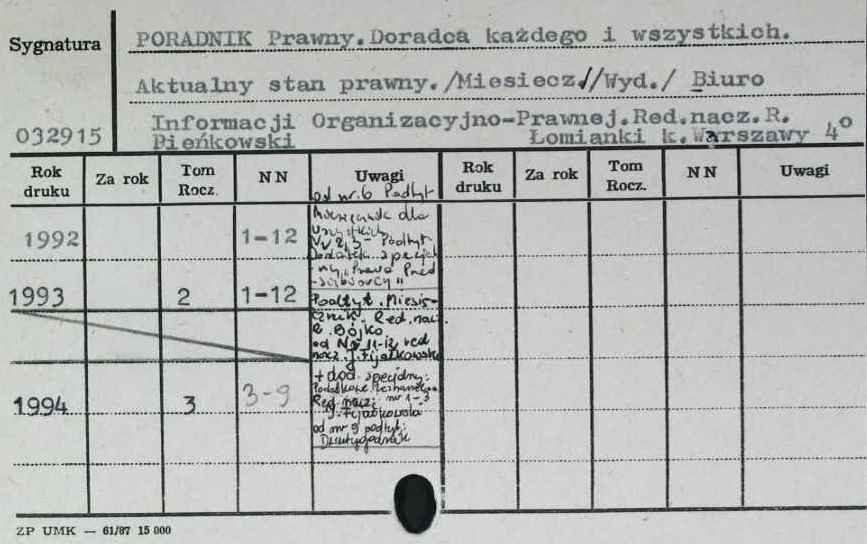 Sygnatura
PORADNIK Prawny.Doradca każdego i wszystkich.
Aktualny stan prawny./Miesiecz//Wyd./ Biuro
Informacji Organizacyjno-Prawnej.Red.nacz.R.
032915 Pieńkowski Łomianki k.Warszawy 4º
Rok druku Za rok Tom Rocz. NN Uwagi Rok druku Za rok Tom Rocz. NN Uwagi
od nr. 6 Podtyt
Miesięcznik dla
wszystkich
1992 1-12 Podtyt
Dodatek specjal
-ny "Prawo Przed
-siębiorcy"
1993 2 1-12 Podtyt. Miesię-
cznik. Red. nacz.
R. Bójko
od Nr 11-12 red
nacz. J. Fijałkowska
+ dod. specjalny:
1994 3 3-9 Red. nacz: nr 1-3
J. Fijałkowska
od nr 9 podtyt:
Dwutygodnik
ZP UMK — 61/87 15 000